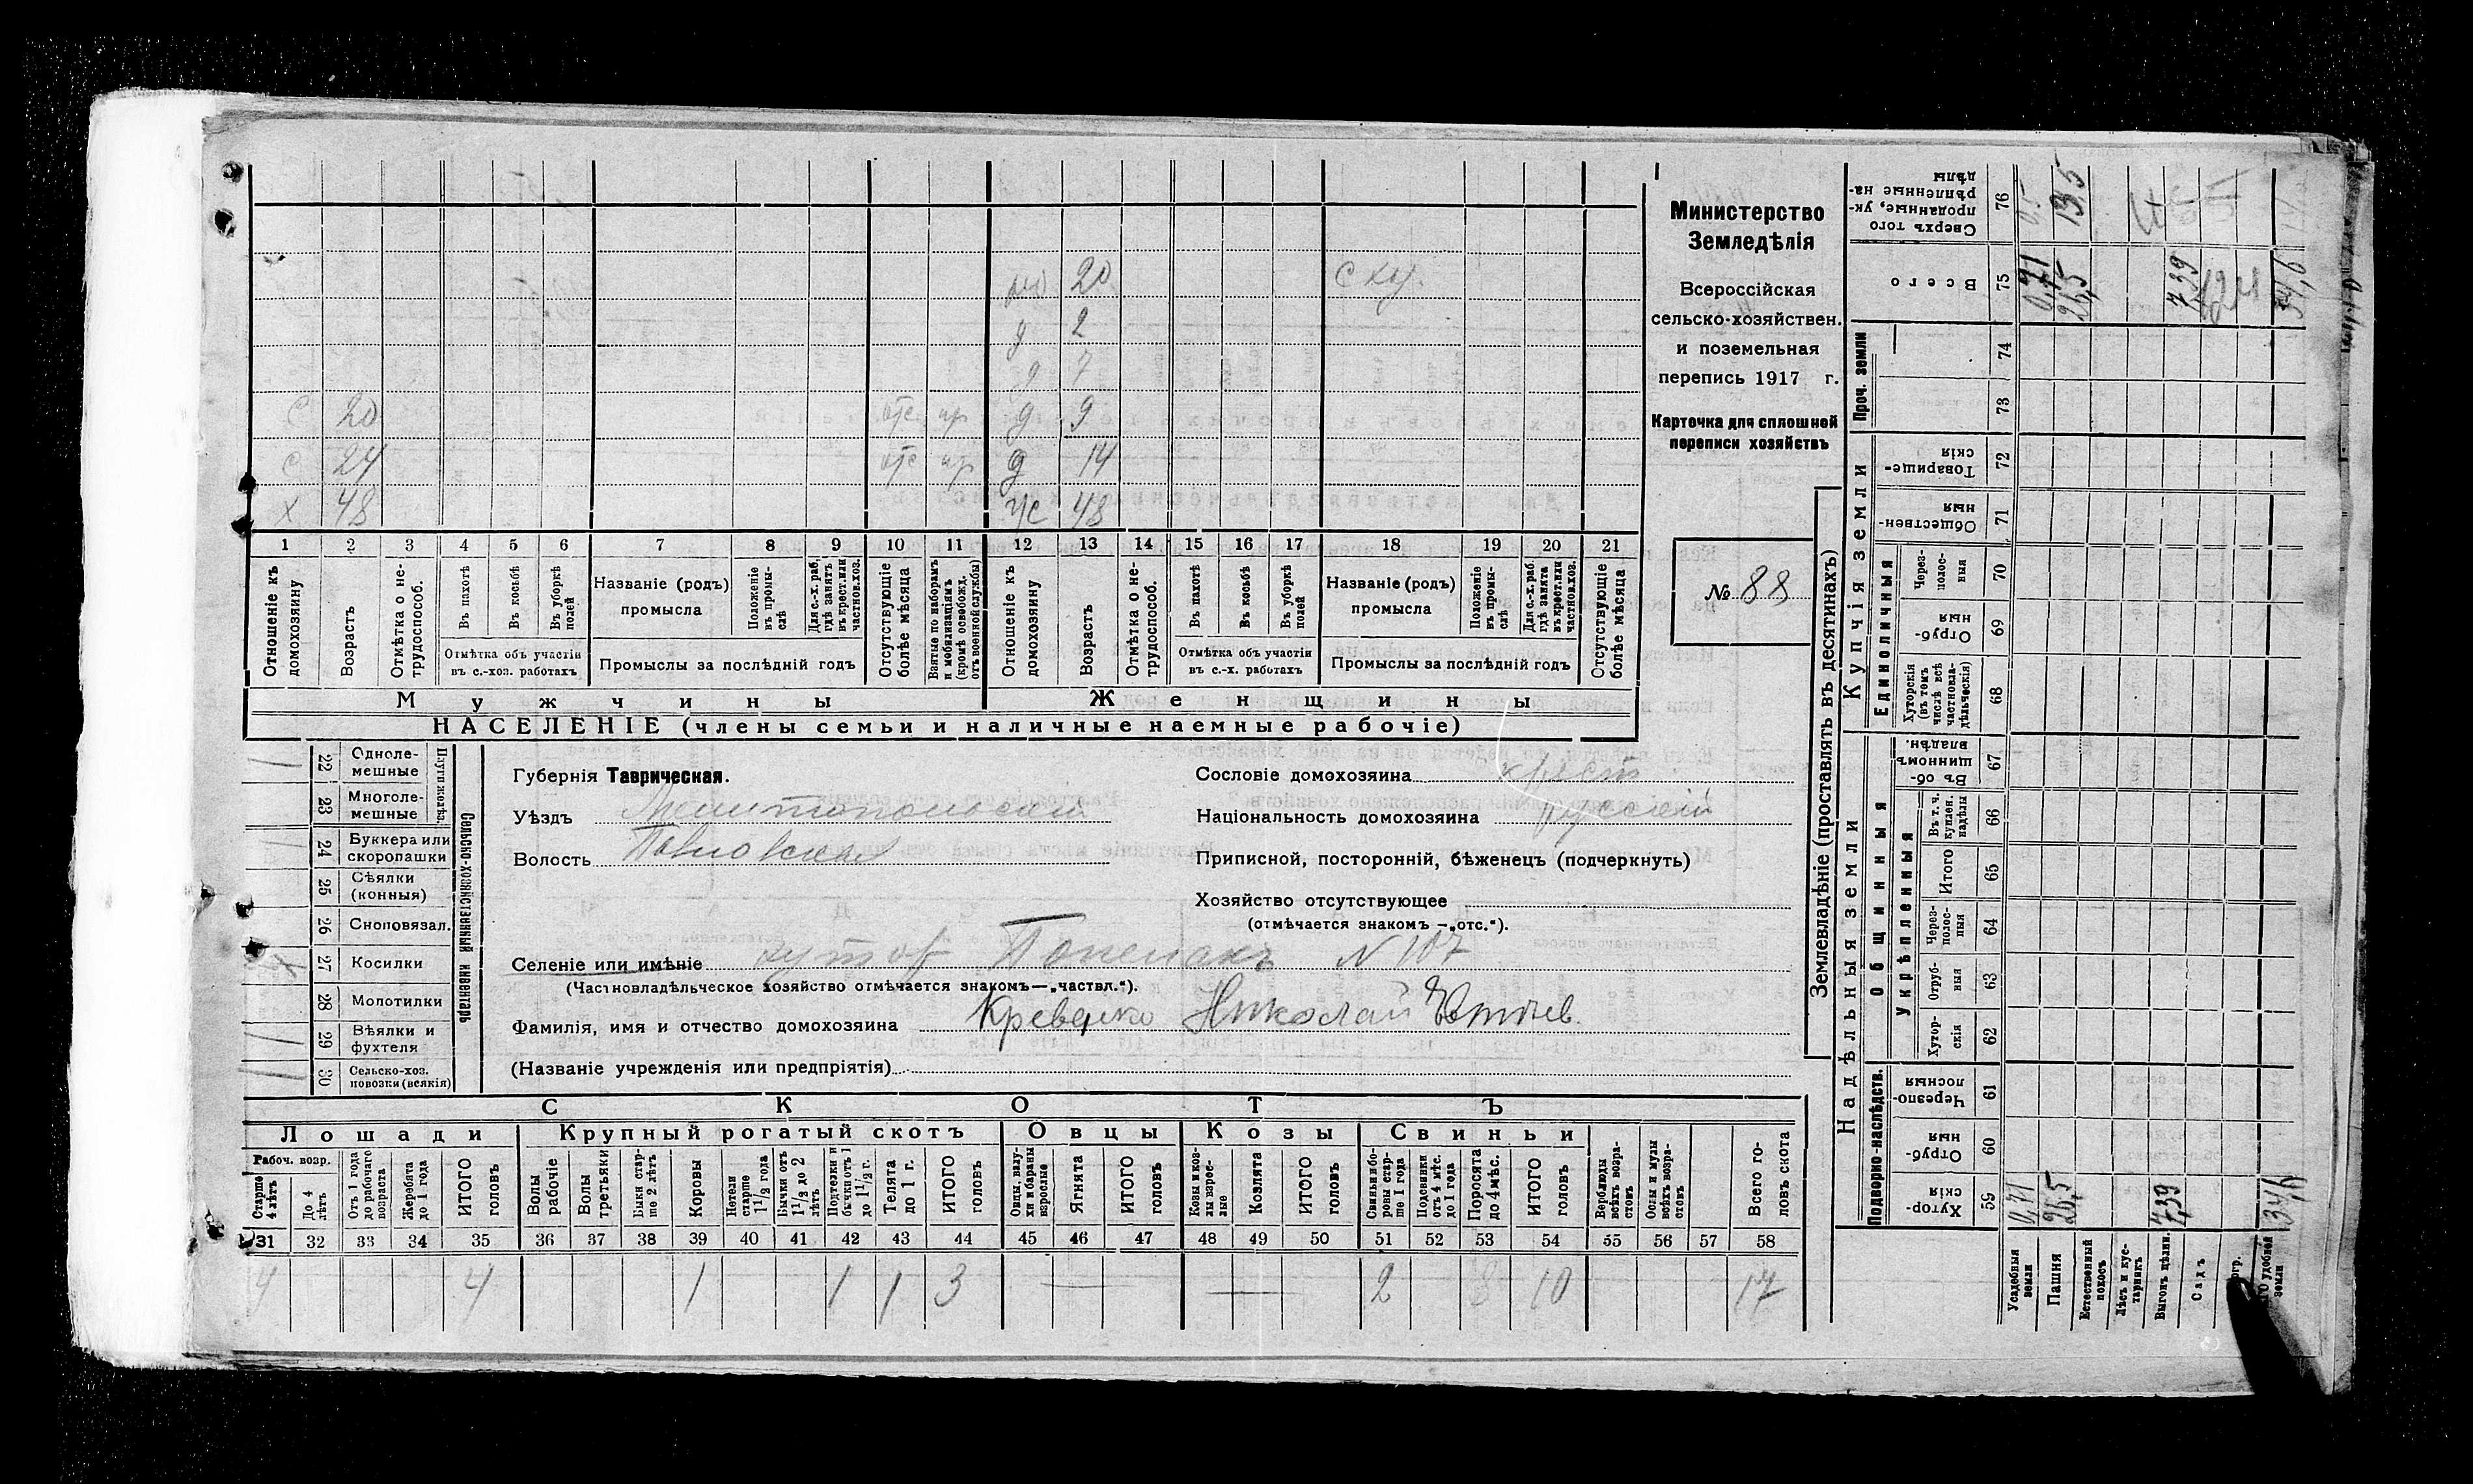 Министерство
Земледѣлія
Всероссійская
сельско-хозяйствен.
и поземельная
перепись 1917 г.
Карточка для сплошной
переписи хозяйствъ
№ 88
20 с ху.
д 2
д 7
с 20 отс. пр д 9
с 24 отс пр д 14
х 48 48
1 2 3 4 5 6 7 8 9 10 11 12 13 14 15 16 17 18 19 20 21
Отношеніе къ домохозяину
Возрастъ
Отмѣтка о не-трудоспособ.
Въ пахотѣ
Въ косьбѣ
Въ уборкѣ полей
Отмѣтка объ участіи
въ с.-хоз. работахъ
Названіе (родъ)
промысла
Положеніе въ промы-слѣ
Для с.-х. раб, гдѣ занятъ въ крест. или частнов. хоз.
Промыслы за послѣдній годъ
Отсутствующіе болѣе мѣсяца
Взятые по наборамъ и мобилизаціямъ (кромѣ освобожд. отъ военной службы)
Отношеніе къ домохозяину
Возрастъ
Отмѣтка о не-трудоспособ.
Въ пахотѣ
Въ косьбѣ
Въ уборкѣ полей
Отмѣтка объ участіи
въ с.-х. работахъ
Названіе (родъ)
промысла
Положеніе въ промы-слѣ
Для с.-х. раб. гдѣ занята въ крест. или частнов. хоз.
Промыслы за послѣдній годъ
Отсутствующіе болѣе мѣсяца
Мужчины Женщины
НАСЕЛЕНІЕ (члены семьи и наличные наемные рабочіе)
Сельско-хозяйственный инвентарь
Плуги желѣз.
22 Одноле-мешные
23 Многоле-мешные
24 Буккера или скоропашки
25 Сѣялки (конныя)
26 Сноповязал.
27 Косилки
28 Молотилки
29 Вѣялки и фухтеля
30 Сельско-хоз. повозки (всякія)
Губернія Таврическая.
Уѣздъ Мелитопольскій
Волость Павловская
Сословіе домохозяина крест.
Національность домохозяина русскій
Приписной, посторонній, бѣженецъ (подчеркнуть)
Хозяйство отсутствующее
(отмѣчается знакомъ —„отс.“).
Селеніе или имѣніе хутор N 107
(Частновладѣльческое хозяйство отмѣчается знакомъ—„частвл.“).
Фамилія, имя и отчество домохозяина Николай
(Названіе учрежденія или предпріятія)
СКОТЪ
Лошади Крупный рогатый скотъ Овцы Козы Свиньи
Рабоч. возр.
Старше 4 лѣтъ
До 4 лѣтъ
Отъ 1 года до рабочаго возраста
Жеребята до 1 года
ИТОГО головъ
Волы рабочіе
Волы третьяки
Быки стар-ше 2 лѣтъ
Коровы
Нетели старше 1 1/2 года
Бычки отъ 1 1/2 до 2 лѣтъ
Подтелки и бычки отъ 1 до 1 1/2 г.
Телята до 1 г.
ИТОГО головъ
Овцы, валу-хи и бараны взрослые
Ягнята
ИТОГО головъ
Козы и коз-лы взрос-лые
Козлята
ИТОГО головъ
Свиньи и бо-ровы стар-ше 1 года
Подсвинки отъ 4 мѣс. до 1 года
Поросята до 4 мѣс.
ИТОГО головъ
Верблюды всѣхъ возра-стовъ
Ослы и мулы всѣхъ возра-стовъ
Всего го-ловъ скота
31 32 33 34 35 36 37 38 39 40 41 42 43 44 45 46 47 48 49 50 51 52 53 54 55 56 57 58
4 4 1 1 1 3 — — 2 8 10 17
Землевладѣніе (проставлять въ десятинахъ)
Надѣльныя земли
Купчія земли
Проч. земли
Подворно-наслѣдств.
Общинныя
Укрѣпленныя
Единоличныя
Хутор-скія 59
Отруб-ныя 60
Черезпо-лосныя 61
Хутор-скія 62
Отруб-ныя 63
Через-полос-ныя 64
Итого 65
Въ т. ч. куплен. надѣлы 66
Въ об-щинномъ владѣн. 67
Хуторскія (въ томъ числѣ всѣ частновла-дѣльческія) 68
Отруб-ныя 69
Через-полос-ныя 70
Обществен-ныя 71
Товарище-скія 72
73
74
Всего 75
Сверхъ того проданные, ук-рѣпленные на-дѣлы 76
Усадебныя земли 0,71 0,71
Пашня 26,5 26,5 13,5
Естественный покосъ
Лѣсъ и кус-тарникъ
Выгонъ цѣлин. 7,39 7,39
Садъ
удобной земли 34,6 34,6